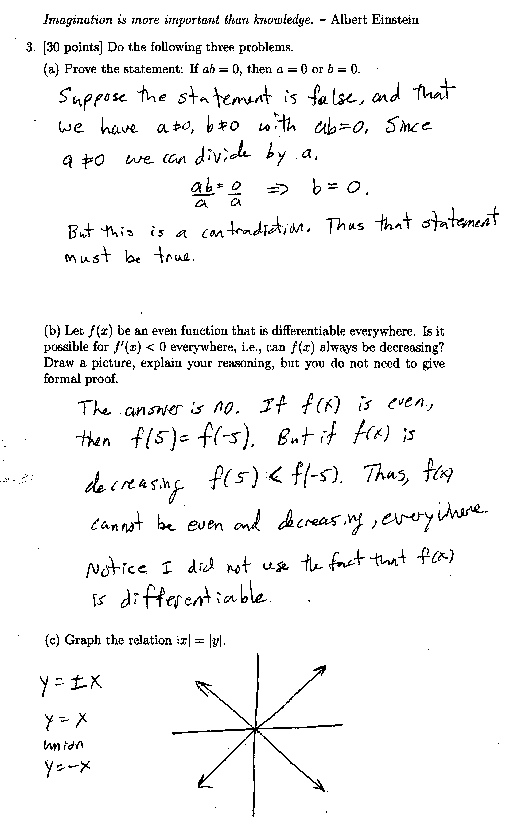 Imagination is more important than knowledge. – Albert Einstein
3. [30 points] Do the following three problems.
(a) Prove the statement: If ab = 0, then a = 0 or b = 0.
Suppose the statement is false, and that
we have a≠0, b≠0 with ab=0. Since
a≠0 we can divide by a.
ab/a = 0/a ⇒ b=0.
But this is a contradiction. Thus that statement
must be true.
(b) Let f(x) be an even function that is differentiable everywhere. Is it
possible for f′(x) < 0 everywhere, i.e., can f(x) always be decreasing?
Draw a picture, explain your reasoning, but you do not need to give
formal proof.
The answer is no. If f(x) is even,
then f(5)=f(-5). But if f(x) is
decreasing f(5) < f(-5). Thus, f(x)
cannot be even and decreasing, everywhere.
Notice I did not use the fact that f(x)
is differentiable.
(c) Graph the relation |x| = |y|.
y=±x
y=x
union
y=-x